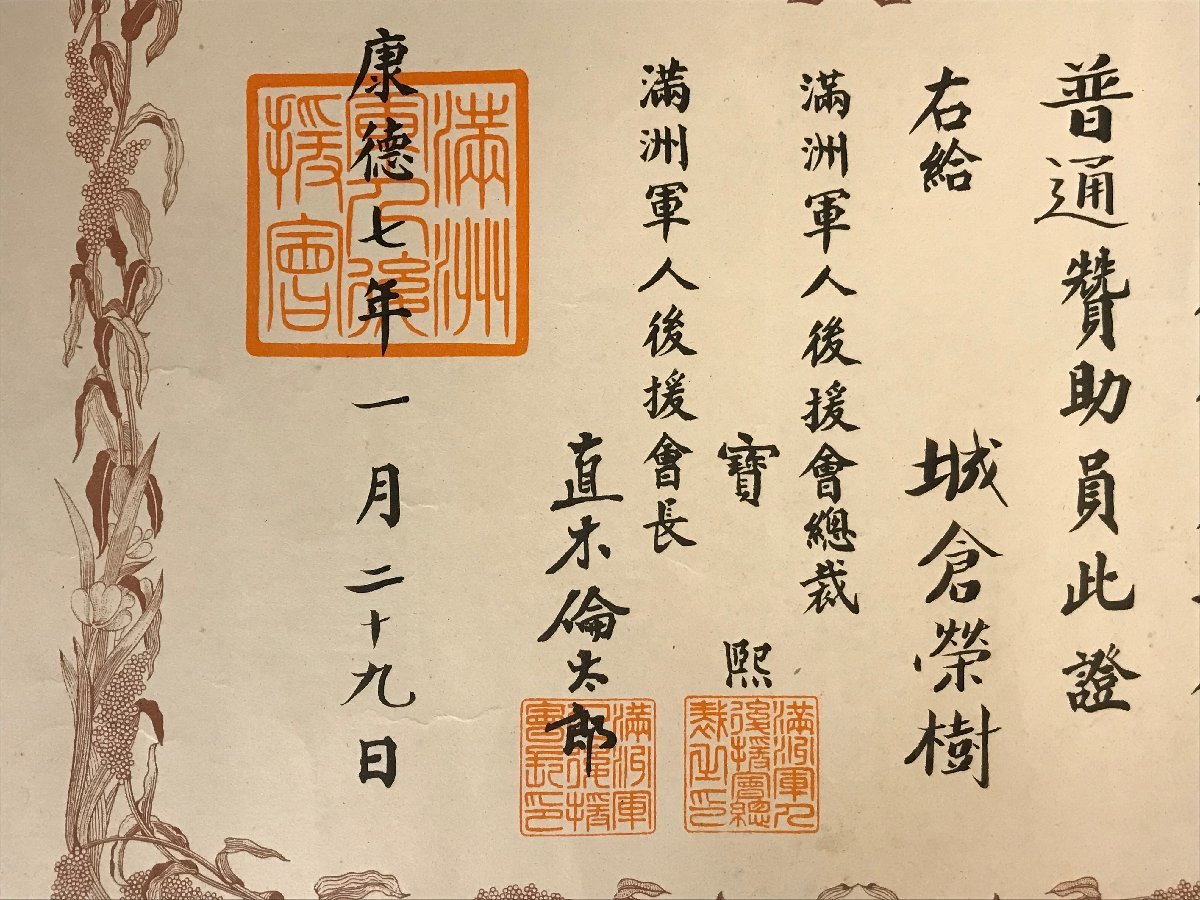 普通贊助員此證
右給
城倉榮樹
滿洲軍人後援會總裁
寶熙
滿洲軍人後援會長
直木倫太郎
康德七年一月二十九日
滿洲
軍人後
援會
滿洲軍人
後援會總
裁之印
滿洲軍
人後援
會長印